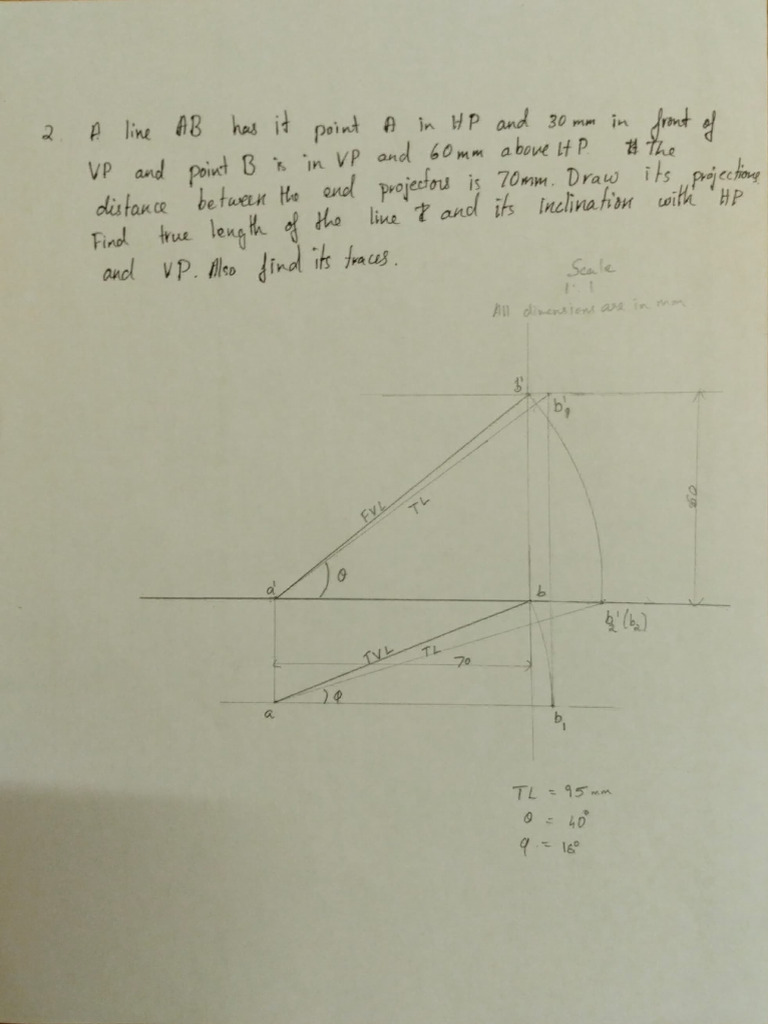 2. A line AB has it point A in HP and 30 mm in front of
VP and point B is in VP and 60 mm above HP the
distance between the end projectors is 70mm. Draw its projections
Find true length of the line and its inclination with HP
and VP. Also find its traces.
Scale
1:1
All dimensions are in mm
b'
b'1
FVL
TL
60
a'
θ
b
b2'(b2)
TVL
TL
70
a
φ
b1
TL = 95 mm
θ = 40°
φ = 16°